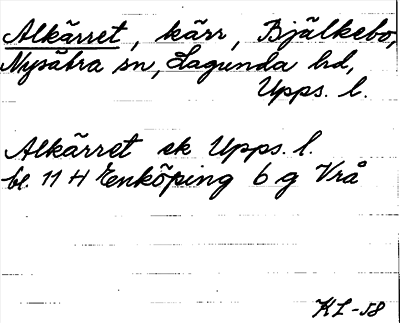 Alkärret, kärr, Bjälkebo,
Nysätra sn, Lagunda hd,
Upps. l.
Alkärret ek Upps. l.
bl. 11 H Enköping 6 g Vrå
KL-58